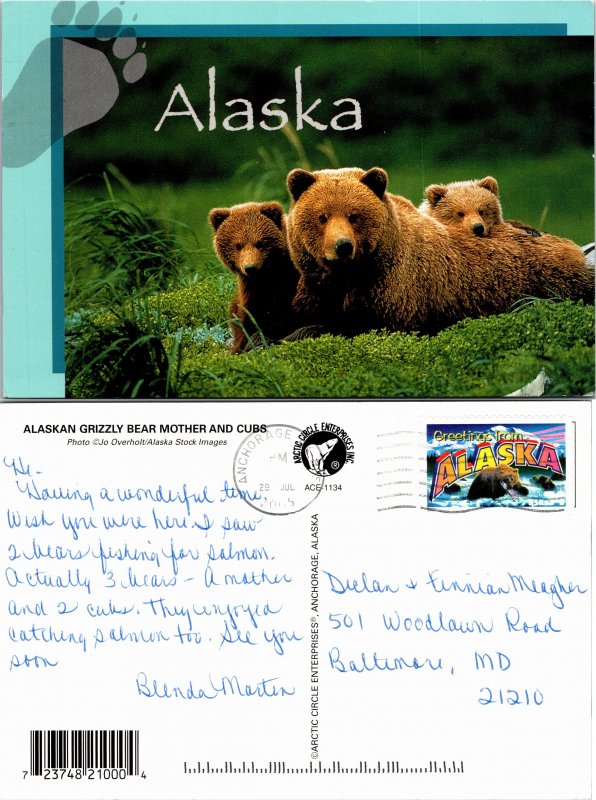 Alaska
ALASKAN GRIZZLY BEAR MOTHER AND CUBS
Photo ©Jo Overholt/Alaska Stock Images
ANCHORAGE
PM
29 JUL
ARCTIC CIRCLE ENTERPRISES INC.
®
ACE-1134
Greetings from
ALASKA
Hi-
Having a wonderful time.
Wish you were here. I saw
2 bears fishing for salmon.
Actually 3 bears - A mother
and 2 cubs. They enjoyed
catching salmon too. See you
soon
Blenda Martin
©ARCTIC CIRCLE ENTERPRISES®, ANCHORAGE, ALASKA
Declan & Finnian Meagher
501 Woodlawn Road
Baltimore, MD
21210
7 23748 21000 4